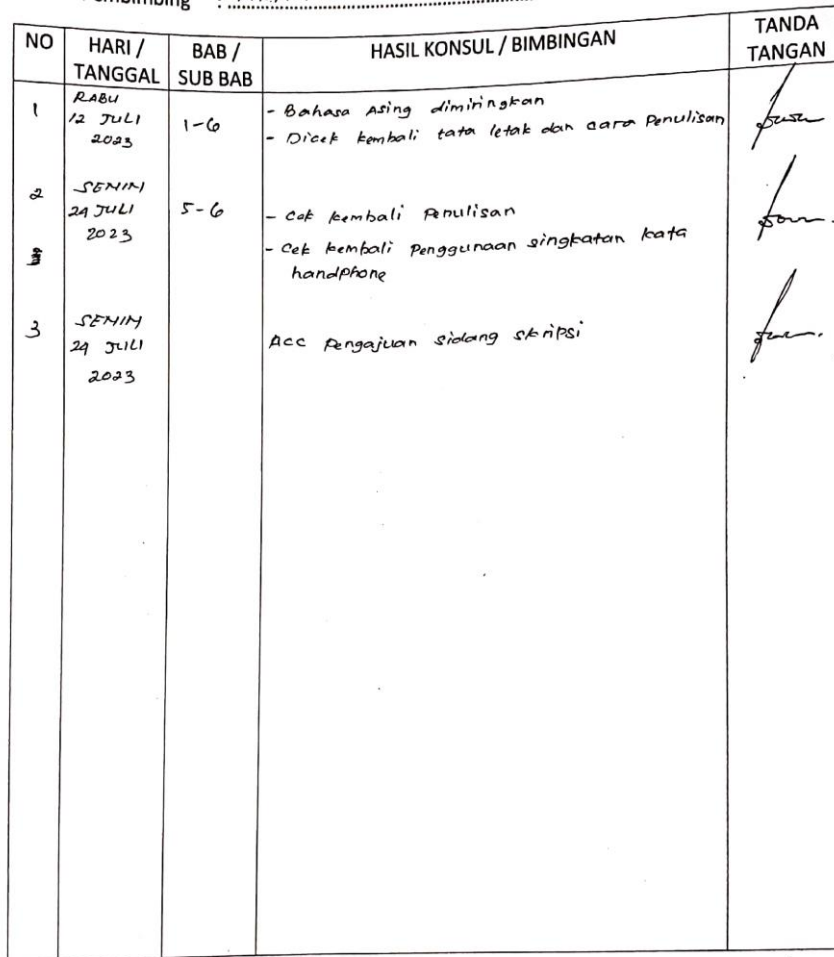 NO
HARI / TANGGAL
BAB / SUB BAB
HASIL KONSUL / BIMBINGAN
TANDA TANGAN
1
RABU
12 JULI
2023
1-6
- Bahasa Asing dimiringkan
- Dicek kembali tata letak dan cara Penulisan
2
SENIN
24 JULI
2023
5-6
- Cek kembali Penulisan
- Cek kembali Penggunaan singkatan kata
handphone
3
SENIN
24 JULI
2023
Acc Pengajuan sidang skripsi